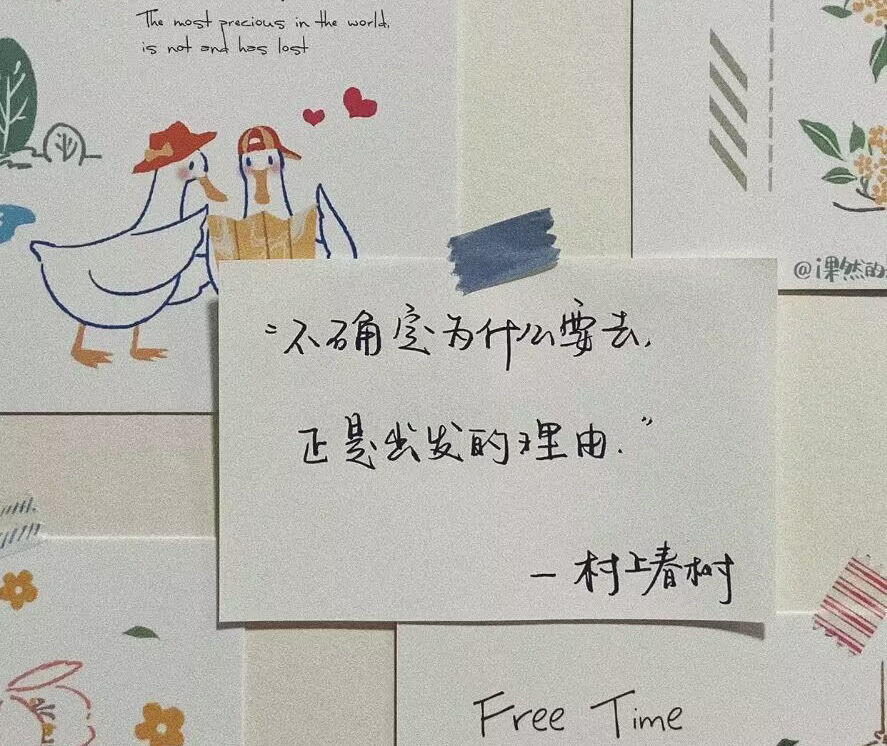 The most precious in the world.
is not and has lost
@i果然的
“不确定为什么要去.
正是出发的理由.”
—村上春树
Free Time